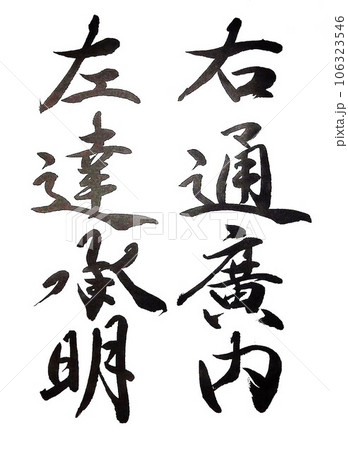 右通廣内
左達承明
PIXTA
pixta.jp - 106323546